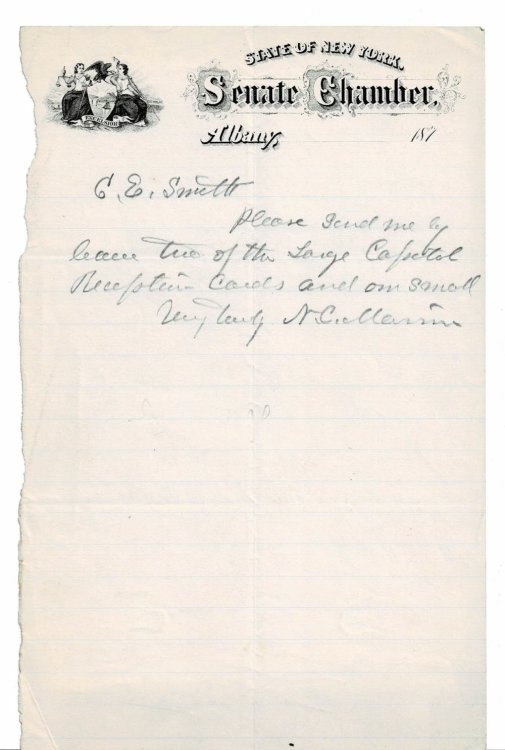 STATE OF NEW YORK.
Senate Chamber.
EXCELSIOR
Albany, 187
C. E. Smith
Please send me by
two of the Large Capitol
Reception Cards and one small
Very truly N.C.